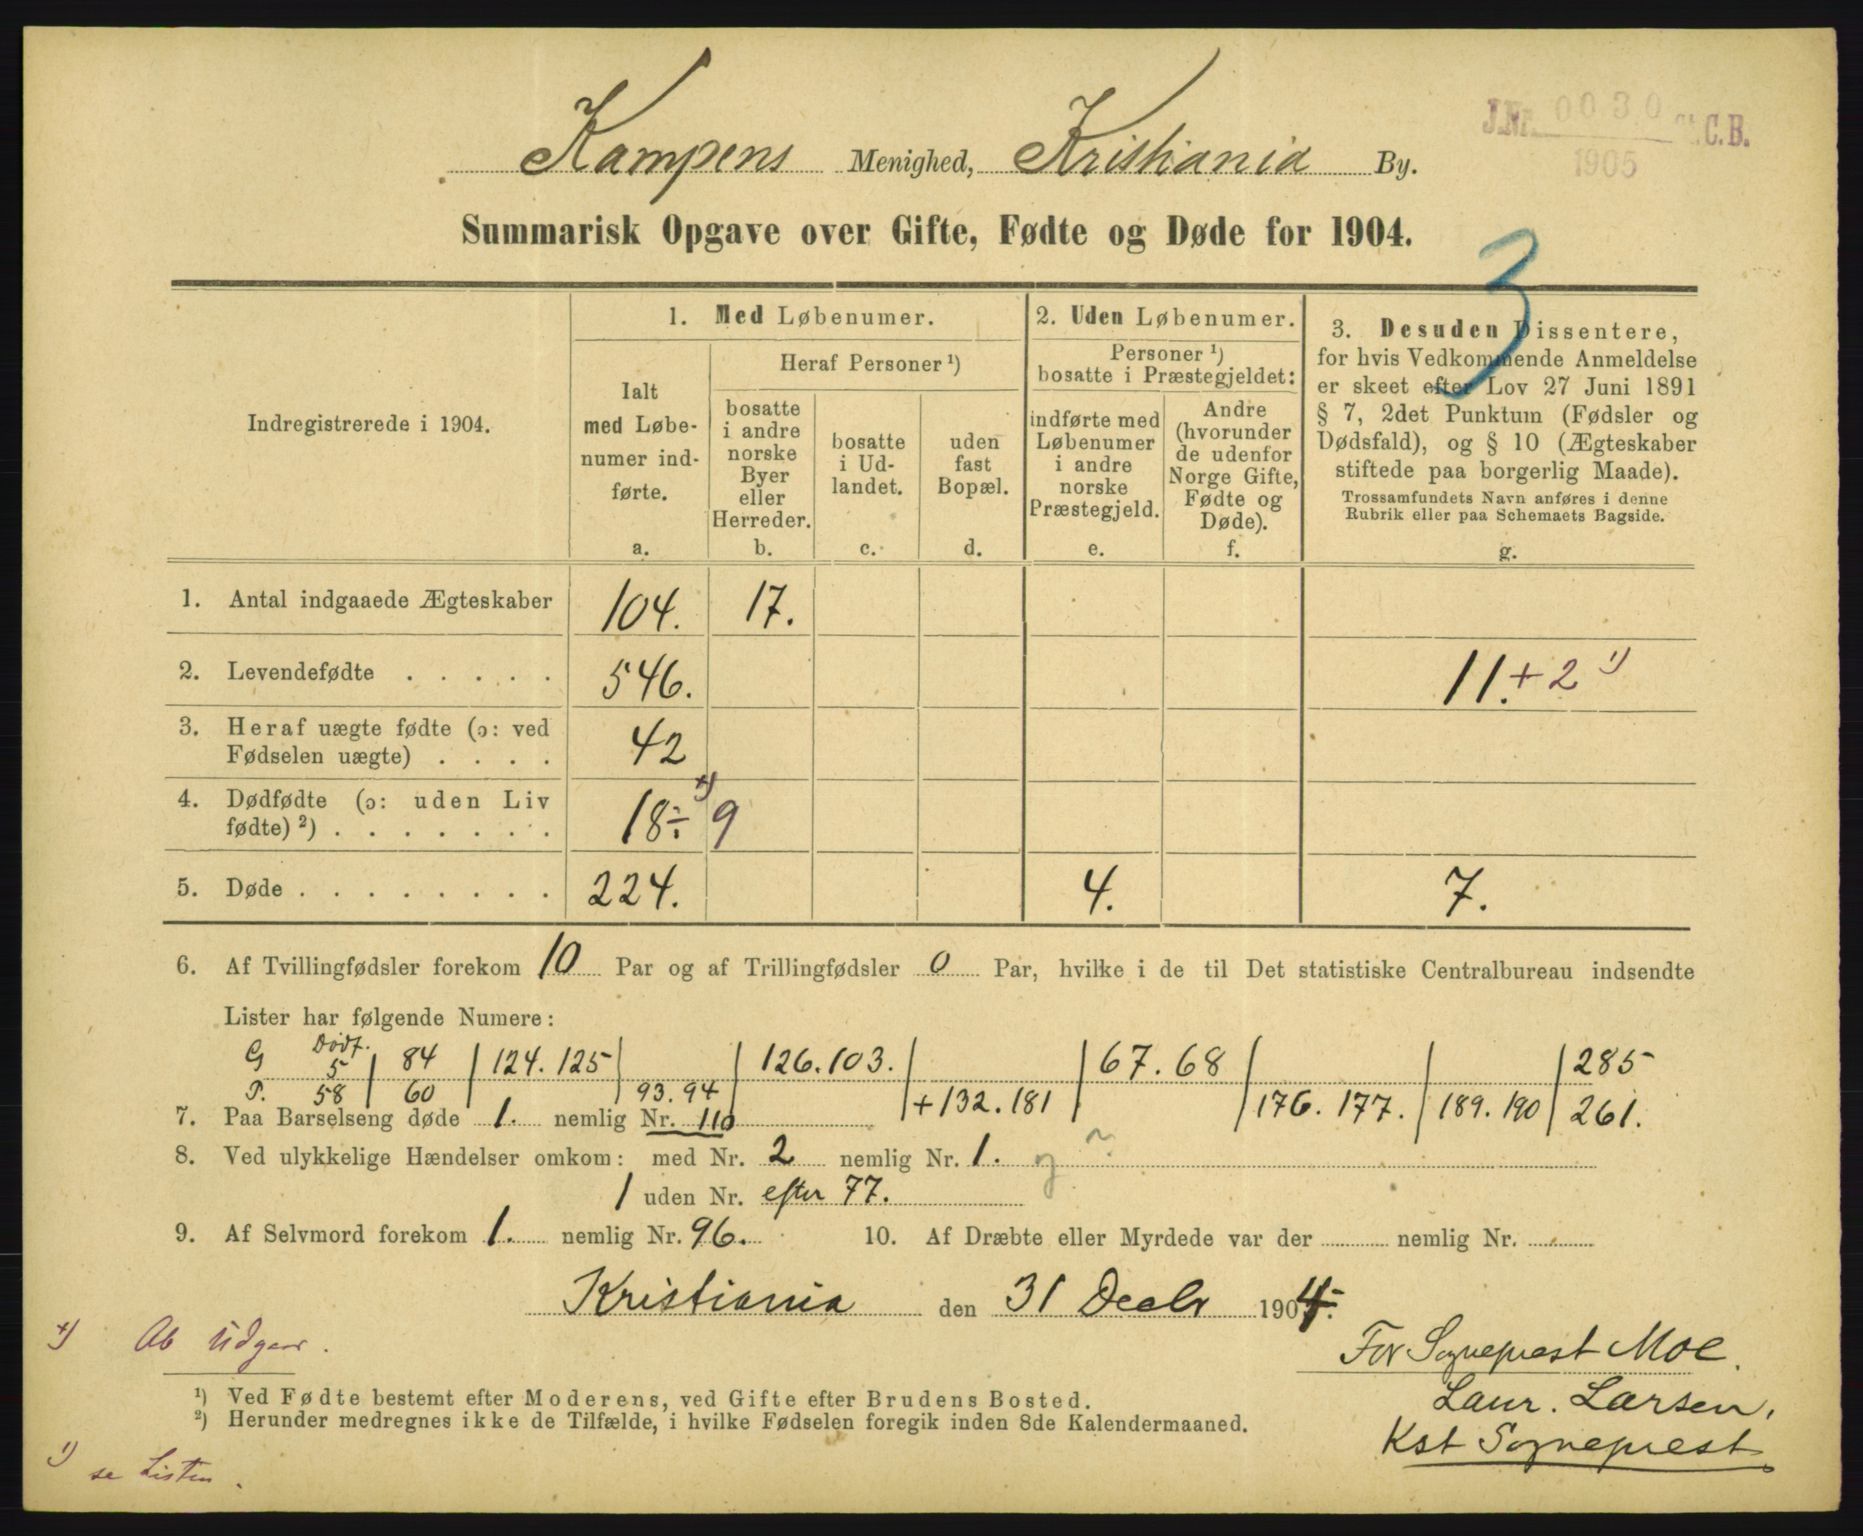 J.Nr. 0030 C.B.
1905
Kampens Menighed, Kristiania By.
Summarisk Opgave over Gifte, Fødte og Døde for 1904.
3
Indregistrerede i 1904.
1. Med Løbenumer.
Ialt
med Løbe-
numer ind-
førte.
a.
Heraf Personer ¹)
bosatte
i andre
norske
Byer
eller
Herreder.
b.
bosatte
i Ud-
landet.
c.
uden
fast
Bopæl.
d.
2. Uden Løbenumer.
Personer ¹)
bosatte i Præstegjeldet:
indførte med
Løbenumer
i andre
norske
Præstegjeld.
e.
Andre
(hvorunder
de udenfor
Norge Gifte,
Fødte og
Døde).
f.
3. Desuden Dissentere,
for hvis Vedkommende Anmeldelse
er skeet efter Lov 27 Juni 1891
§ 7, 2det Punktum (Fødsler og
Dødsfald), og § 10 (Ægteskaber
stiftede paa borgerlig Maade).
Trossamfundets Navn anføres i denne
Rubrik eller paa Schemaets Bagside.
g.
1. Antal indgaaede Ægteskaber 104. 17.
2. Levendefødte . . . . . 546. 11.+2 ¹)
3. Heraf uægte fødte (ɔ: ved
Fødselen uægte) . . . . 42
4. Dødfødte (ɔ: uden Liv
fødte) ²) . . . . . . . 18 ÷ ˣ) 9
5. Døde . . . . . . . . 224. 4. 7.
6. Af Tvillingfødsler forekom 10 Par og af Trillingfødsler 0 Par, hvilke i de til Det statistiske Centralbureau indsendte
Lister har følgende Numere:
G Dødf. 5 | 84 | 124. 125 | | 126. 103. | | 67. 68 | | | 285
P. 58 | 60 | | 93. 94 | | +132. 181 | | 176. 177. | 189. 190 | 261.
7. Paa Barselseng døde 1. nemlig Nr. 110
8. Ved ulykkelige Hændelser omkom: med Nr. 2 nemlig Nr. 1. og ~
1 uden Nr. efter 77.
9. Af Selvmord forekom 1. nemlig Nr. 96. 10. Af Dræbte eller Myrdede var der nemlig Nr.
Kristiania den 31 Decbr 1904.
ˣ) Ab udgaar.
For Sognepræst Moe.
Laur. Larsen,
Kst Sognepræst
¹) Ved Fødte bestemt efter Moderens, ved Gifte efter Brudens Bosted.
²) Herunder medregnes ikke de Tilfælde, i hvilke Fødselen foregik inden 8de Kalendermaaned.
¹) se Listen.